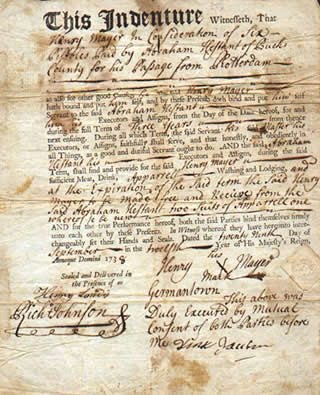 This Indenture Witnesseth, That
Henry Mayer In Consideration of Six
Pistoles Paid by Abraham Hestant of Bucks
County for his Passage from Rotterdam
as also for other good Henry Mayer
hath bound and put hym self, and by these Presents doth bind and put hym self
Servant to the said Abraham Hestant
his Executors and Assigns, from the Day of the Date hereof, for and
during the full Term of Three Years
next ensuing. During all which Term, the said Servant his said Master his
Executors, or Assigns, faithfully shall serve, and that honestly, and obediently in
all Things, as a good and dutiful Servant ought to do. AND the said Abraham
Hestant his Executors and Assigns, during the said
Term, shall find and provide for the said Henry Mayer
sufficient Meat, Drink, Apparrel Washing and Lodging, and
at the Expiration of the said term the said Henry
Mayer to be made free and Receive from the
Said Abraham Hestant two Suits of Apparrell one
whereof to be new
AND for the true Performance hereof, both the said Parties bind themselves firmly
unto each other by these Presents. In Witness whereof they have hereunto inter-
changeably set their Hands and Seals. Dated the
September in the twelfth Year of His Majesty's Reign,
Annoque Domini 1738
his
Henry Mayer
Mark
Sealed and Delivered in
the Presence of us
Henry
Rich Johnson
Germantown
This above was
Duly Executed by Mutual
Consent of both Parties before
Me